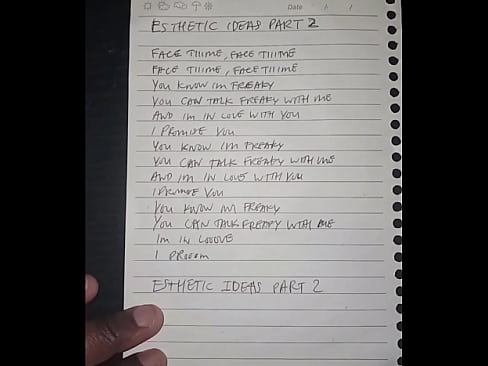 Date / /
ESTHETIC IDEAS PART 2
FACE TIIIME, FACE TIIIME
FACE TIIIME, FACE TIIIME
YOU KNOW IM FREAKY
YOU CAN TALK FREAKY WITH ME
AND IM IN LOVE WITH YOU
I PROMISE YOU
YOU KNOW IM FREAKY
YOU CAN TALK FREAKY WITH ME
AND IM IN LOVE WITH YOU
I PROMISE YOU
YOU KNOW IM FREAKY
YOU CAN TALK FREAKY WITH ME
IM IN LOOOVE
I PROOOM
ESTHETIC IDEAS PART 2